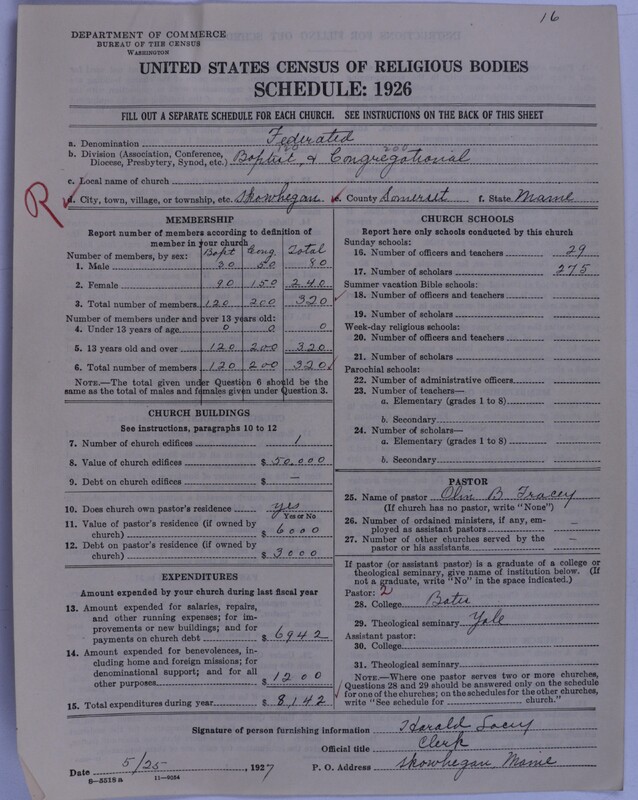 16
DEPARTMENT OF COMMERCE
BUREAU OF THE CENSUS
WASHINGTON
UNITED STATES CENSUS OF RELIGIOUS BODIES
SCHEDULE: 1926
FILL OUT A SEPARATE SCHEDULE FOR EACH CHURCH. SEE INSTRUCTIONS ON THE BACK OF THIS SHEET
a. Denomination Federated
120 200
b. Division (Association, Conference, Diocese, Presbytery, Synod, etc.) Baptist & Congregational
c. Local name of church
R d. City, town, village, or township, etc. Skowhegan e. County Somerset f. State Maine
MEMBERSHIP
Report number of members according to definition of
member in your church
Bapt Cong Total
Number of members, by sex:
1. Male 30 50 80
2. Female 90 150 240
3. Total number of members 120 200 320
Number of members under and over 13 years old:
4. Under 13 years of age 0 0 0
5. 13 years old and over 120 200 320
6. Total number of members 120 200 320
NOTE.—The total given under Question 6 should be
same as the total of males and females given under Question 3.
CHURCH BUILDINGS
See instructions, paragraphs 10 to 12
7. Number of church edifices 1
8. Value of church edifices $ 50.000
9. Debt on church edifices $ —
10. Does church own pastor's residence? yes
Yes or No
11. Value of pastor's residence (if owned by
church) $ 6000
12. Debt on pastor's residence (if owned by
church) $ 3000
EXPENDITURES
Amount expended by your church during last fiscal year
13. Amount expended for salaries, repairs,
and other running expenses; for im-
provements or new buildings; and for
payments on church debt $ 6942
14. Amount expended for benevolences, in-
cluding home and foreign missions; for
denominational support; and for all
other purposes $ 1200
15. Total expenditures during year $ 8,142
CHURCH SCHOOLS
Report here only schools conducted by this church
Sunday schools:
16. Number of officers and teachers 29
17. Number of scholars 275
Summer vacation Bible schools:
18. Number of officers and teachers
19. Number of scholars
Week-day religious schools:
20. Number of officers and teachers
21. Number of scholars
Parochial schools:
22. Number of administrative officers
23. Number of teachers—
a. Elementary (grades 1 to 8)
b. Secondary
24. Number of scholars—
a. Elementary (grades 1 to 8)
b. Secondary
PASTOR
25. Name of pastor Olin B Tracey
(If church has no pastor, write "None")
26. Number of ordained ministers, if any, em-
ployed as assistant pastors —
27. Number of other churches served by the
pastor or his assistants —
If pastor (or assistant pastor) is a graduate of a college or
theological seminary, give name of institution below. (If
not a graduate, write "No" in the space indicated.)
Pastor: 2
28. College Bates
29. Theological seminary Yale
Assistant pastor:
30. College
31. Theological seminary
NOTE.—Where one pastor serves two or more churches,
Questions 28 and 29 should be answered only on the schedule
for one of the churches; on the schedules for the other churches,
write "See schedule for church."
Signature of person furnishing information Harald
Official title Clerk
Date 5/25, 1927 P. O. Address Skowhegan, Maine
8-5518 a 11-9264